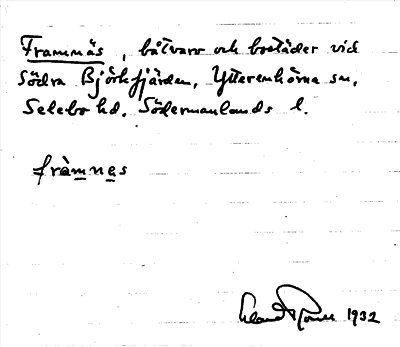 Frammäs, båtvarv och bostäder vid
Södra Björkfjärden, Ytterenhörna sn.
Selebo hd. Södermanlands l.
fràmnes
1932